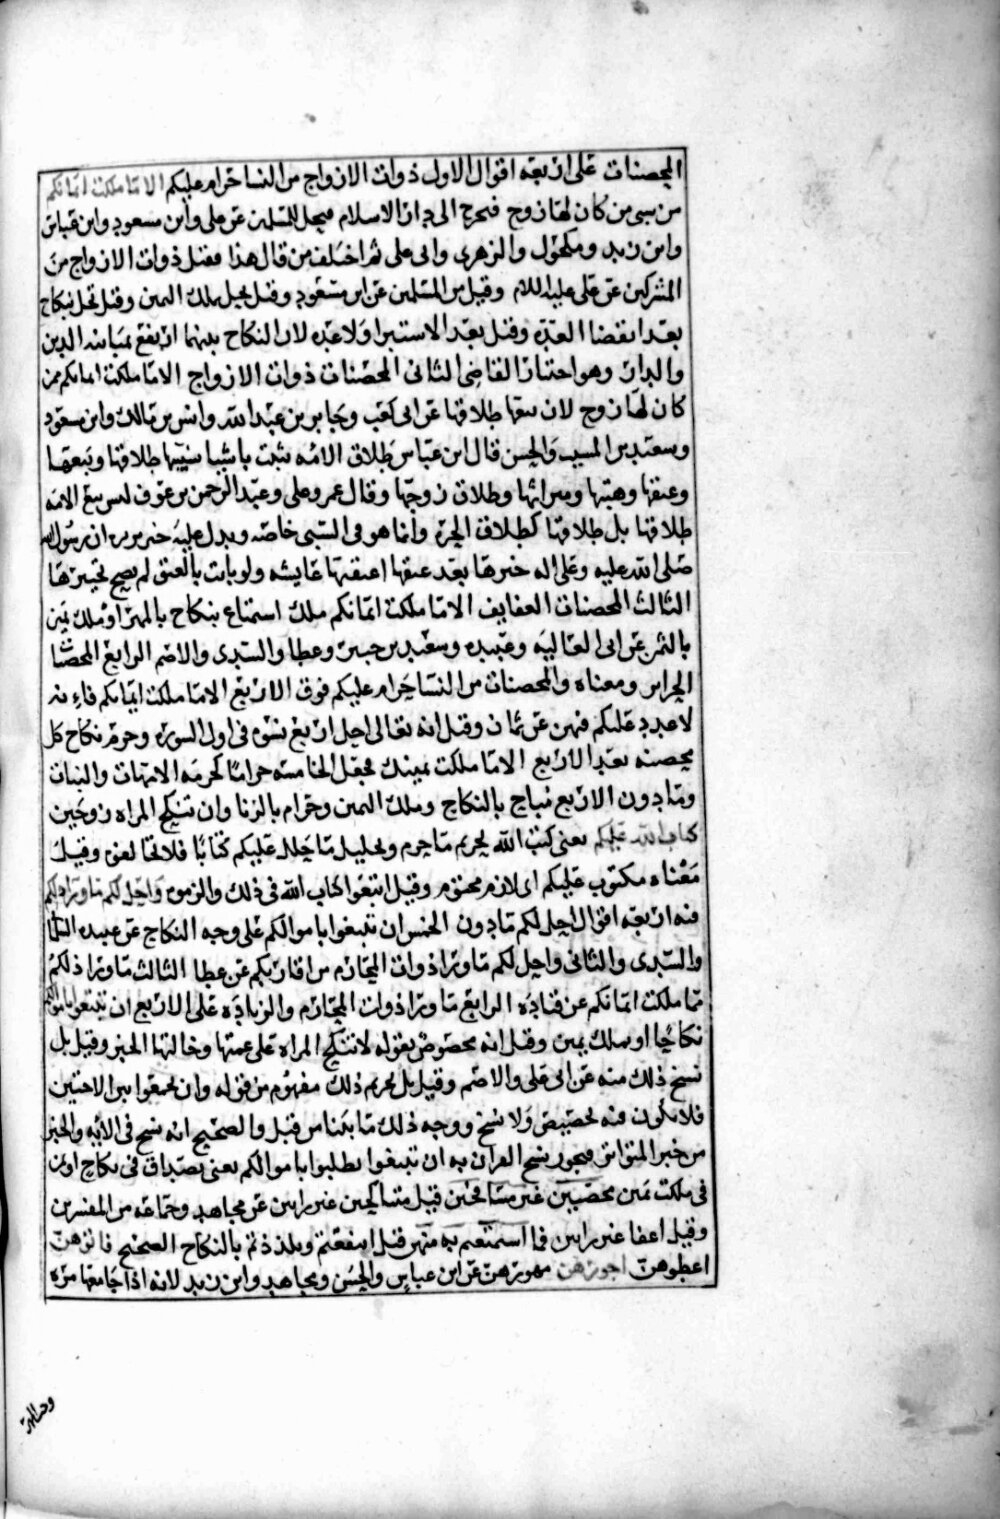 المحصنات على اربعه اقوال الاول ذوات الازواج من النسا حرام عليكم الا ما ملكت ايمانكم
من سبى من كان لها زوج فتخرج الى دار الاسلام فتحل للمسلمين عن على وابن مسعود وابن عباس
وابن زيد ومكحول والزهرى وابى على ثم اختلف من قال هذا فقيل ذوات الازواج من
المشركين عن على عليه السلام وقيل من المسلمين عن ابن مسعود وقيل يحل بملك اليمين وقيل تحل بنكاح
بعد انقضا العده وقيل بعد الاستبرا ولا عده لان النكاح بينهما ارتفع بمباينه الدين
والدار وهو اختيار القاضى الثانى المحصنات ذوات الازواج الا ما ملكت ايمانكم ممن
كان لها زوج لان بيعها طلاقها عن ابى كعب وجابر بن عبد الله وانس بن مالك وابن مسعود
وسعيد بن المسيب والحسن قال ابن عباس طلاق الامه يثبت باشيا سبيها طلاقها وبيعها
وعتقها وهبتها وميراثها وطلاق زوجها وقال عمر وعلى وعبد الرحمن بن عوف ليس بيع الامه
طلاقها بل طلاقها كطلاق الحرة وانما هو فى السبى خاصه ويدل عليه خبر بريره ان رسول الله
صلى الله عليه وعلى اله خيرها بعد عتقها اعتقتها عايشه ولو بانت بالعتق لم يصح تخييرها
الثالث المحصنات العفايف الا ما ملكت ايمانكم ملك استمتاع بنكاح بالمهر او ملك يمين
بالثمن عن ابى العاليه وعبيده وسعيد بن جبير وعطا والسدى والاصم الرابع المحصنات
الحراير ومعناه والمحصنات من النسا حرام عليكم فوق الاربع الا ما ملكت ايمانكم فانه
لا عدد عليكم فيهن وقيل انه تعالى احل اربع نسوه فى اول السوره وحرم نكاح كل
محصنه بعد الاربع الا ما ملكت يمينك فجعل الخامسه حراما كحرمه الامهات والبنات
وما دون الاربع مباح بالنكاح وملك اليمين وحرام بالزنا وان تنكح المراه زوجين
كتاب الله عليكم يعنى كتب الله تحريم ما حرم وتحليل ما حلل عليكم كتابا فلا تخالفوه وقيل
معناه مكتوب عليكم اى لازم محتوم وقيل اتبعوا كتاب الله فى ذلك والزموه واحل لكم ما ورا ذلكم
فيه اربعه اقوال احل لكم ما دون الخمس ان تبتغوا باموالكم على وجه النكاح عن عبيده السلمانى
والسدى والثانى واحل لكم ما ورا ذوات المحارم من اقاربكم عن عطا الثالث ما ورا ذلكم
مما ملكت ايمانكم عن قتاده الرابع ما ورا ذوات المحارم والزياده على الاربع ان تبتغوا باموالكم
نكاحا او ملك يمين وقيل انه مخصوص بقوله لا تنكح المراه على عمتها وخالتها الخبر وقيل بل
نسخ ذلك منه عن ابى على والاصم وقيل بل تحريم ذلك مفهوم من قوله وان تجمعوا بين الاختين
فلا يكون فيه تخصيص ولا نسخ ووجه ذلك ما بينا من قبل والصحيح انه نسخ فى الايه والخبر
من خبر المتواتر فيجوز نسخ القران به ان تبتغوا تطلبوا باموالكم يعنى بصداق فى نكاح او ثمن
فى ملك يمين محصنين غير مسافحين قيل متناكحين غير زانين عن مجاهد وجماعه من المفسرين
وقيل اعفا غير زانين فما استمتعتم به منهن قيل انتفعتم وتلذذتم بالنكاح الصحيح فاتوهن
اعطوهن اجورهن مهورهن عن ابن عباس والحسن ومجاهد وابن زيد لانه اذا جامعها مره